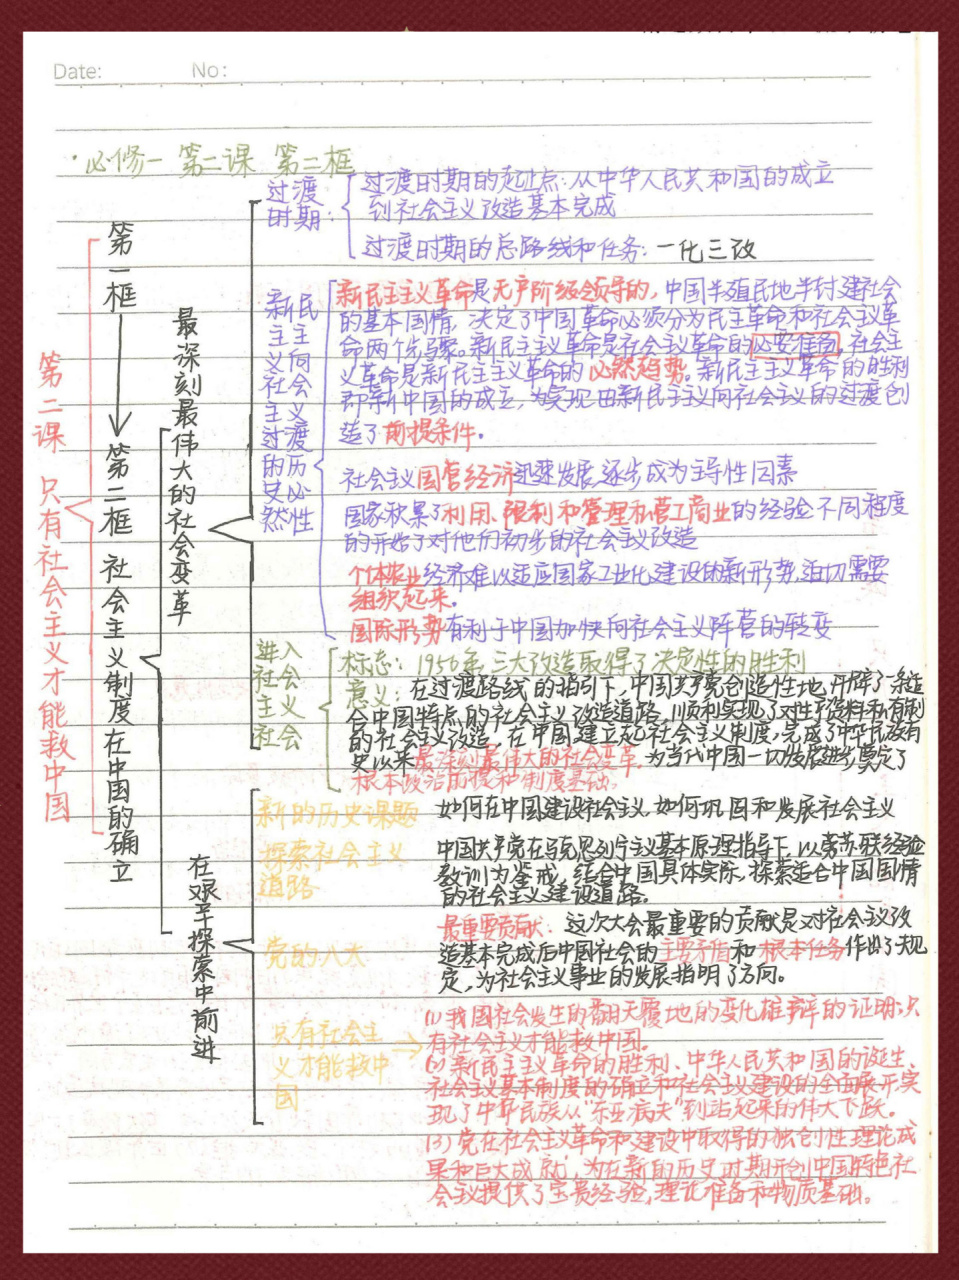 Date:
No:
·必修一 第二课 第二框
第二课 只有社会主义才能救中国
第一框
第二框 社会主义制度在中国的确立
最深刻最伟大的社会变革
过渡
时期:
过渡时期的起止点:从中华人民共和国的成立
到社会主义改造基本完成
过渡时期的总路线和任务:一化三改
新民
主主
义向
社会
主义
过渡
的历
史必
然性
新民主主义革命是无产阶级领导的,中国半殖民地半封建社会
的基本国情,决定了中国革命必须分为民主革命和社会主义革
命两个步骤。新民主主义革命是社会主义革命的必要准备,社会主
义革命是新民主主义革命的必然趋势。新民主主义革命的胜利
即新中国的成立,为实现由新民主主义向社会主义的过渡创
造了前提条件。
社会主义国营经济迅速发展,逐步成为主导性因素
国家积累了利用、限制和管理私营工商业的经验不同程度
的开始了对他们初步的社会主义改造
个体农业经济难以适应国家工业化建设的新形势,迫切需要
组织起来。
国际形势有利于中国加快向社会主义阵营的转变
进入
社会
主义
社会
标志:1956年三大改造取得了决定性的胜利
意义:在过渡路线的指引下,中国共产党创造性地开辟了一条适
合中国特点的社会主义改造道路,顺利实现了对生产资料私有制
的社会主义改造,在中国建立起社会主义制度,完成了中华民族有
史以来最深刻最伟大的社会变革,为当代中国一切发展进步奠定了
根本政治前提和制度基础。
在艰辛探索中前进
新的历史课题
如何在中国建设社会主义,如何巩固和发展社会主义
探索社会主义
道路
中国共产党在马克思列宁主义基本原理指导下,以苏联经验
教训为鉴戒,结合中国具体实际,探索适合中国国情
的社会主义建设道路。
党的八大
最重要贡献:这次大会最重要的贡献是对社会主义改
造基本完成后中国社会的主要矛盾和根本任务作出了规
定,为社会主义事业的发展指明了方向。
只有社会主
义才能救中
国
(1)我国社会发生的翻天覆地的变化雄辩的证明:只
有社会主义才能救中国。
(2)新民主主义革命的胜利、中华人民共和国的诞生、
社会主义基本制度的确立和社会主义建设的全面展开实
现了中华民族从“东亚病夫”到站起来的伟大飞跃。
(3)党在社会主义革命和建设中取得的独创性理论成
果和巨大成就,为在新的历史时期开创中国特色社
会主义提供了宝贵经验,理论准备和物质基础。